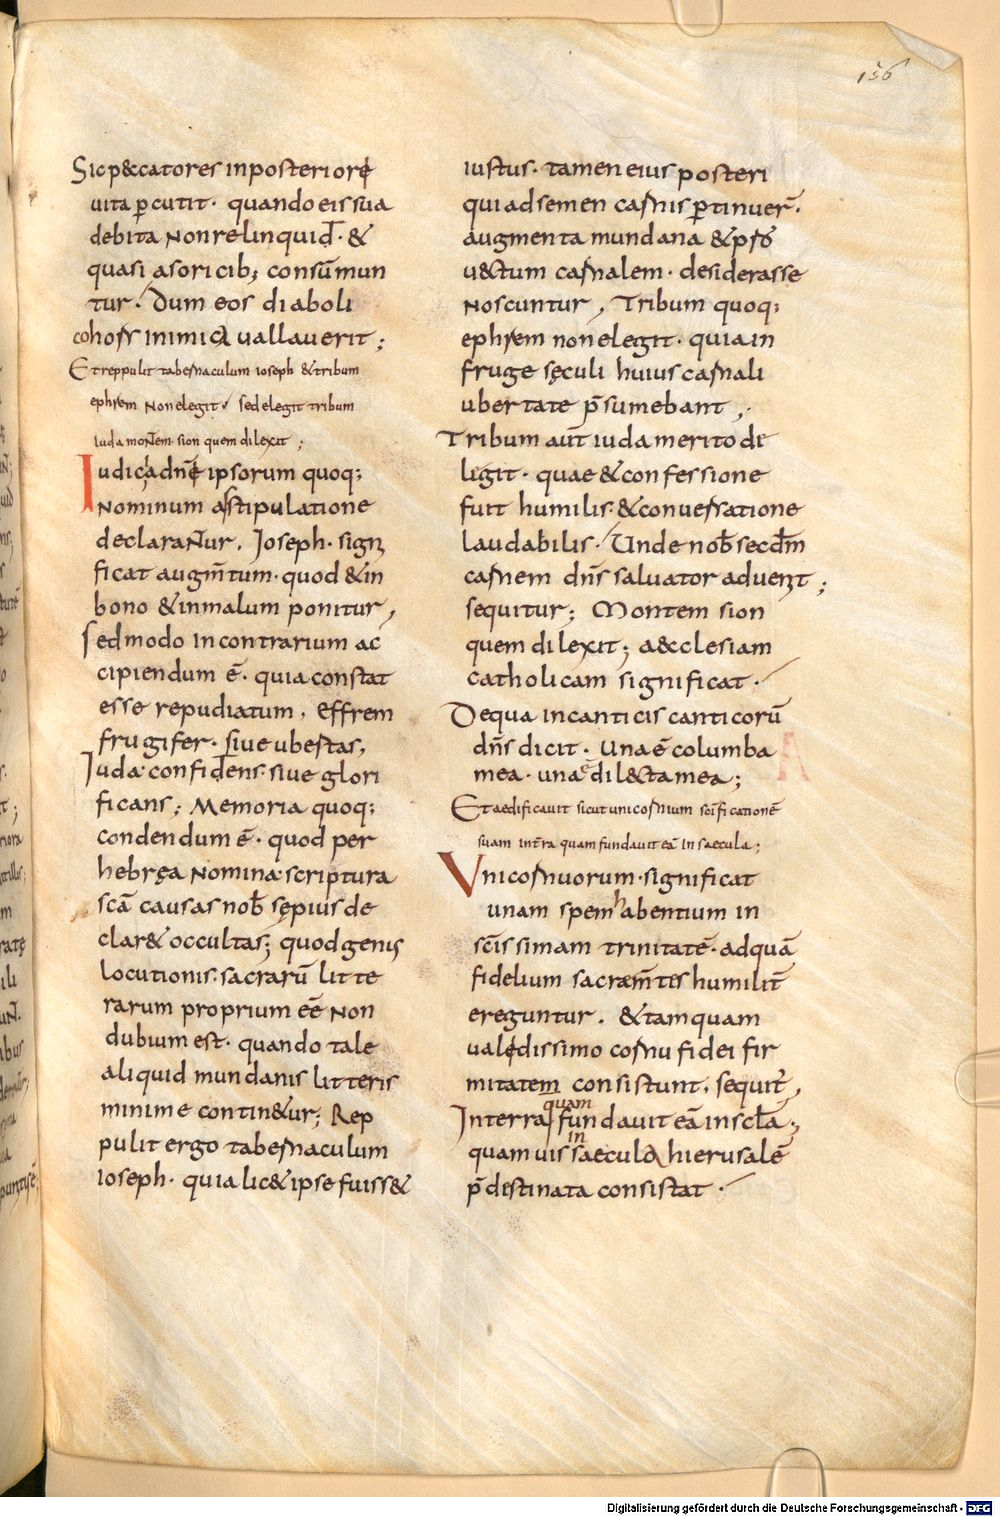 156
Sic p&ccatores inposteriorę
uita ꝑcutit· quando eis sua
debita nonrelinquid̄· &
quasi a soricib; consūmun
tur· Dum eos diaboli
cohors inimica uallauerit;
Et reppulit tabernaculum ioseph & tribum
ephrem non elegit sed elegit tribum
iuda montem sion quem dilexit;
Iudica dn̄e ipsorum quoq;
nominum astipulatione
declarantur. Ioseph· signi
ficat augm̄tum· quod & in
bono & inmalum ponitur,
sed modo in contrarium ac
cipiendum ē· quia constat
esse repudiatum, effrem
frugifer· siue ubertas,
Iuda· confidens· siue glori
ficans; Memoria quoq;
condendum ē· quod per
hebręa nomina· scriptura
sc̄a causas nob̄ sępius de
clar& occultas; quod genus
locutionis· sacrarū litte
rarum proprium eē non
dubium est· quando tale
aliquid mundanis litteris
minime contin&ur; Rep
pulit ergo tabernaculum
ioseph· quia lic& ipse fuiss&
iustus· tamen eius posteri
qui ad semen carnis ꝑtinuer̄·
augmenta mundana &
u&tum carnalem· desiderasse
noscuntur, Tribum quoq;
ephrem non elegit· quia in
fruge sęculi huius carnali
ubertate p̄sumebant,
Tribum aut̄ iuda merito de
legit· quae & confessione
fuit humilis· & conuersatione
laudabilis· Unde nob̄ secdm̄
carnem dn̄s saluator aduenit;
sequitur; Montem sion
quem dilexit; a&cclesiam
catholicam significat·
De qua in canticis canticorū
dn̄s dicit· una ē columba
mea· una ē dil&ta mea;
Et aedificauit sicut unicornium sc̄ificationē
suam in terra quam fundauit eā in saecula;
Unicornuorum· significat
unam spem habentium in
sc̄issimam trinitatē· ad quā
fidelium sacram̄tes humilit̄
ereguntur. & tam quam
ualędissimo cornu fidei fir
mitatem consistunt, sequit̄,
In terra quam fundauit eā in scl̄a;
quamuis in saecula hierusalē
p̄destinata consistat·
Digitalisierung gefördert durch die Deutsche Forschungsgemeinschaft - DFG